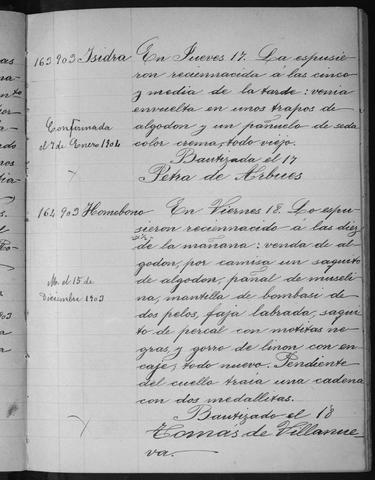 163 903 Isidra En Jueves 17. La espusie-
ron reciennacida á las cinco
y media de la tarde: venia
envuelta en unos trapos de
algodon y un pañuelo de seda
color crema, todo viejo.
Bautizada el 17
Petra de Arbues
Confirmada
el 7 de Enero 1904
164 903 Homobono En Viernes 18. Lo espu-
sieron reciennacido á las diez
de la mañana: venda de al-
godon, por camisa un saquito
de algodon, pañal de museli-
na, mantilla de bombasi de
dos pelos, faja labrada, saqui-
to de percal con motitas ne-
gras, y gorro de linon con en-
caje, todo nuevo. Pendiente
del cuello traia una cadena
con dos medallitas.
Bautizado el 18
Tomás de Villanue-
va.
M. el 15 de
Diciembre 1903